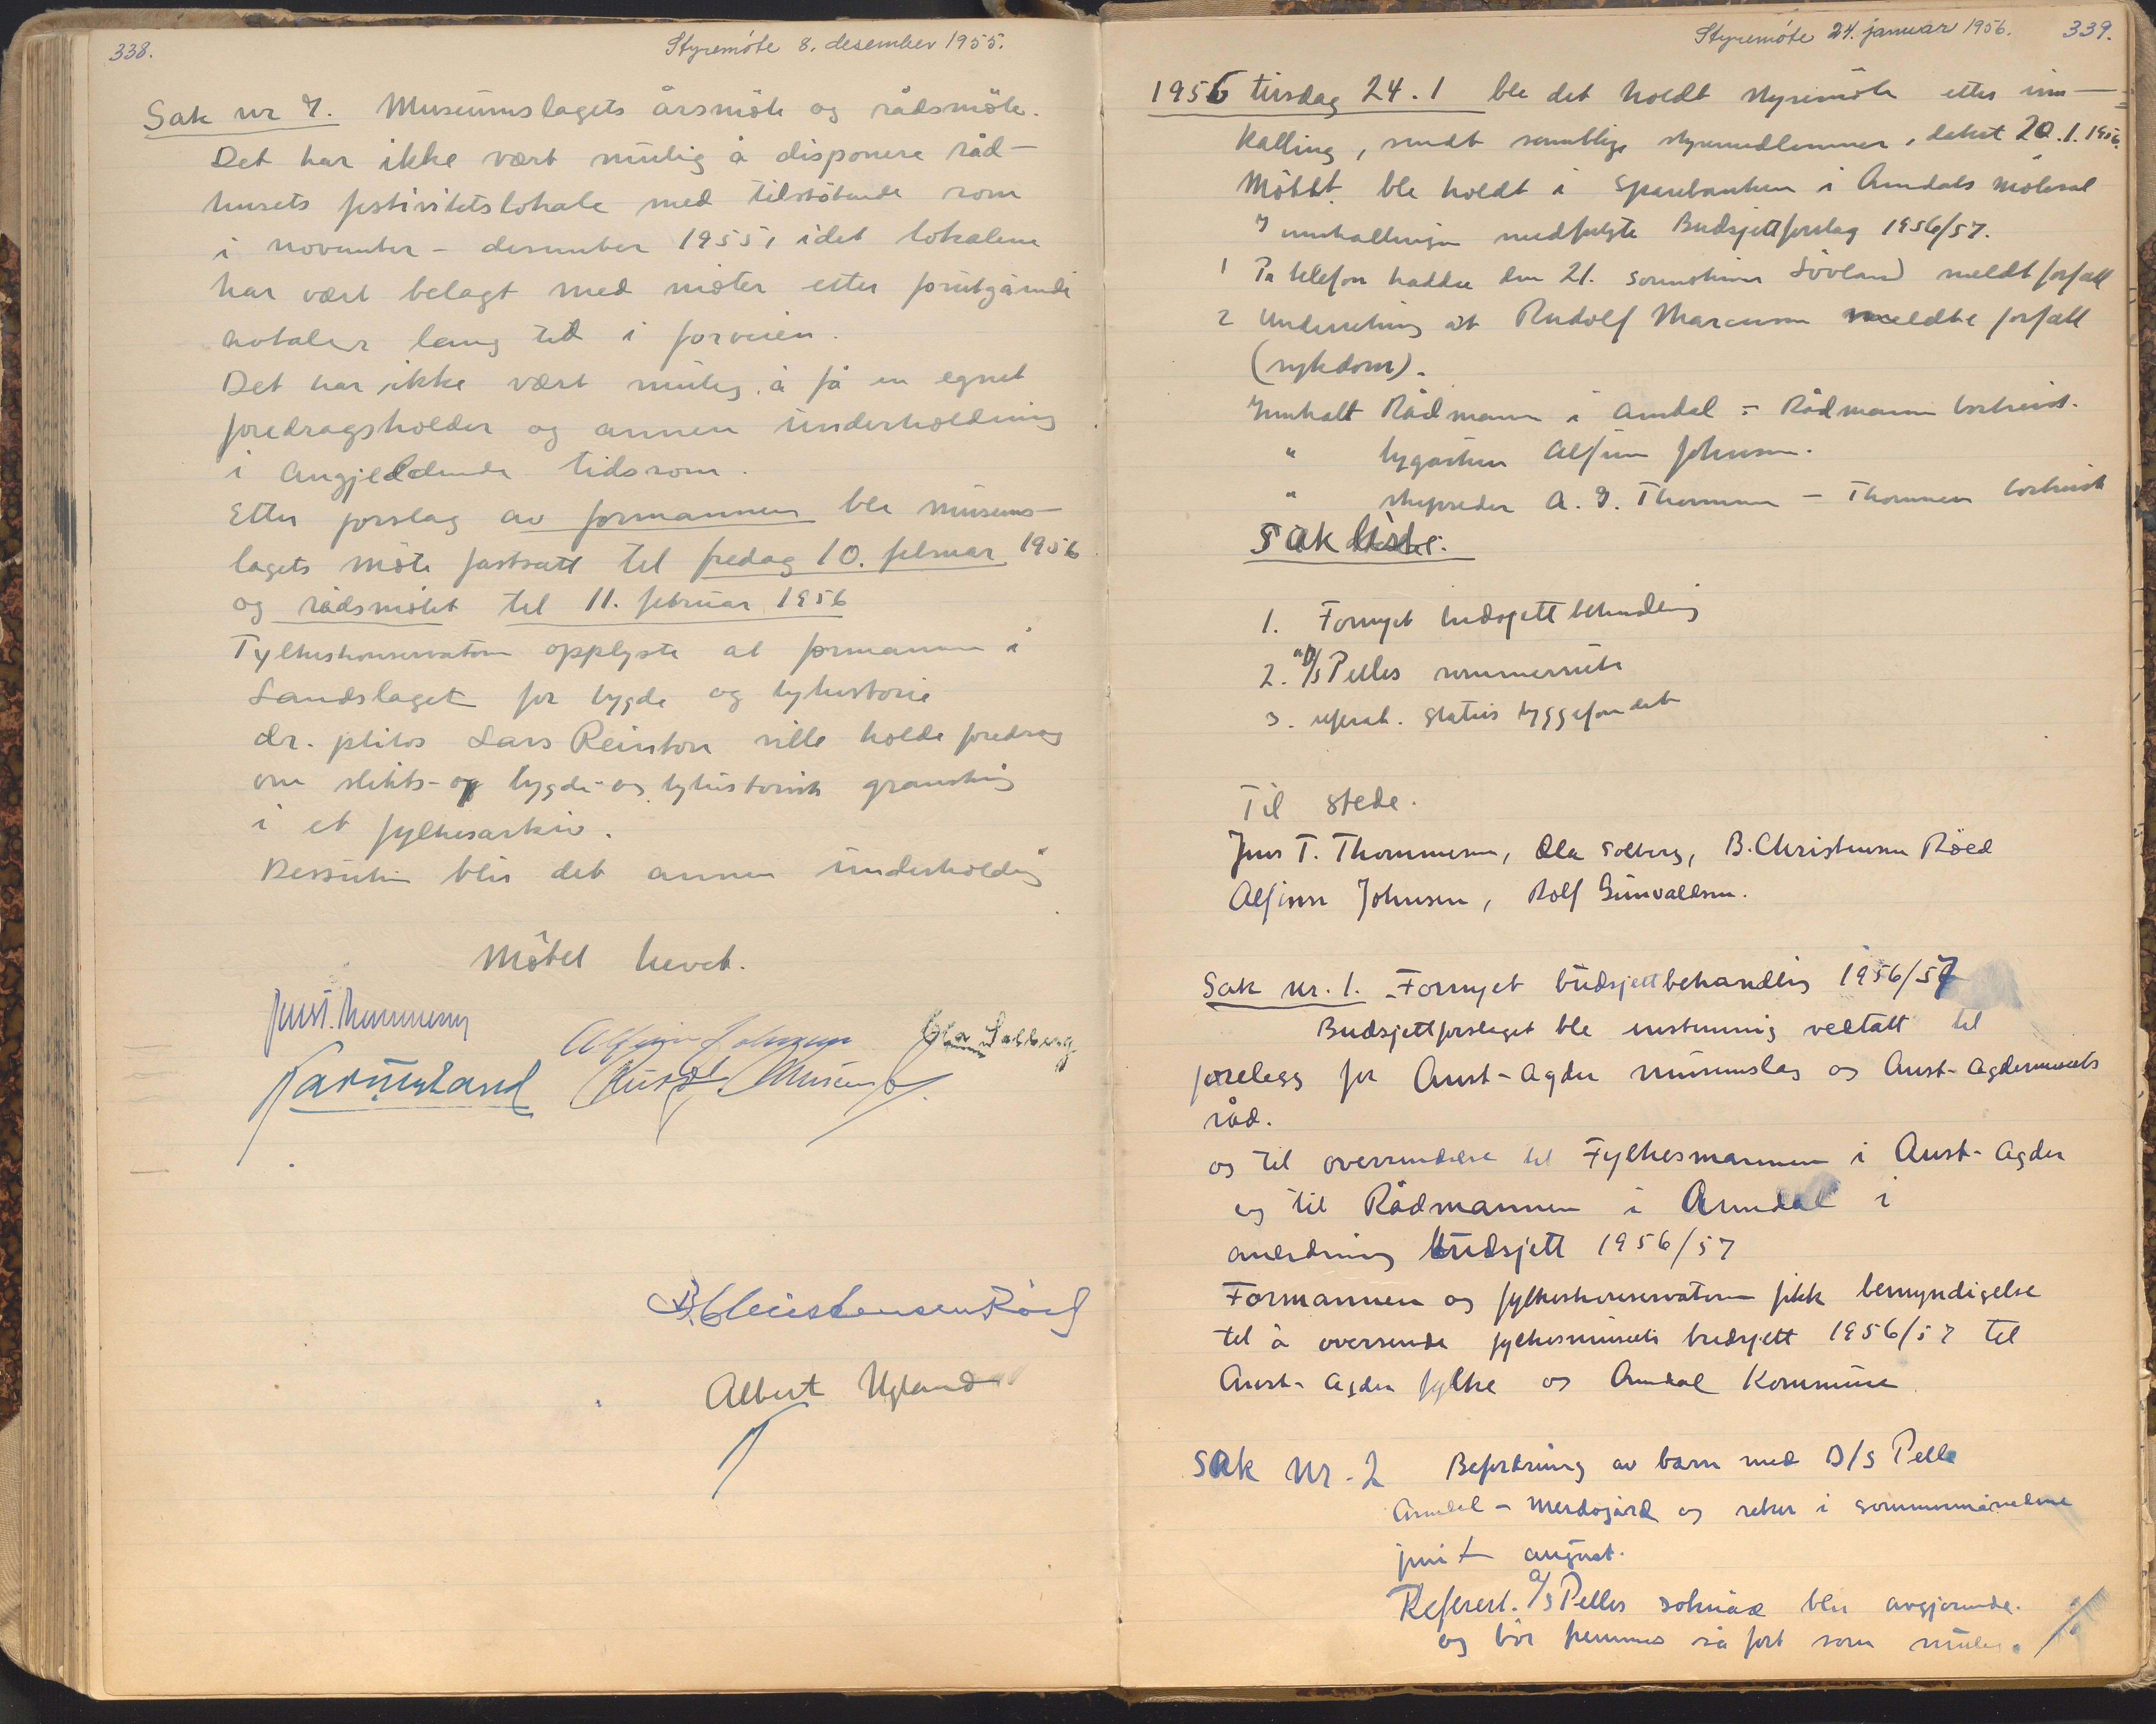 338.
Styremöte 8. desember 1955.
Sak nr 7. Museumslagets årsmöte og rådsmöte.
Det har ikke vært mulig å disponere råd-
husets festivitetslokale med tilstötende rom
i november - desember 1955, idet lokalene
har vært belagt med möter etter forutgående
avtaler lang tid i forveien.
Det har ikke vært mulig å få en egnet
foredragsholder og annen underholdning
i angjeldende tidsrom.
Etter forslag av formannen ble museums-
lagets möte fastsatt til fredag 10. februar 1956
og rådsmötet til 11. februar 1956
Fylkeskonservatoren opplyste at formannen i
Landslaget for bygde og byhistorie
dr. philos Lars Reinton ville holde foredrag
om slekts- og bygde- og byhistorisk gransking
i et fylkesarkiv.
Dessuten blir det annen underholdning
Mötet hevet.
Alfinn Johnsen Ola Solberg
B. Christensen Röed
Albert Ugland
Styremöte 24. januar 1956. 339.
1956 tirsdag 24.1 ble det holdt styremöte etter inn-
kalling, sendt samtlige styremedlemmer, datert 20.1.1956.
Mötet ble holdt i Sparebanken i Arendals mötesal
I innkallingen medfulgte Budsjettforslag 1956/57.
1 Pr telefon hadde den 21. Lövland meldt forfall
2 Underretning at Rudolf Marcussen meldte forfall
(sykdom).
Innkalt Rådmann i Arendal = Rådmann bortreist.
" bygartner Alfinn Johnsen.
" skipsreder A. I. Thommesen - Thommesen bortreist
Sakliste:
1. Fornyet budsjettbehandling
2. A/S Pelles sommerrute
3. referat. status byggefondet
Til stede.
Jens T. Thommesen, Ola Solberg, B. Christensen Röed
Alfinn Johnsen, Rolf Gunvaldsen.
Sak nr. 1. Fornyet budsjettbehandling 1956/57
Budsjettforslaget ble enstemmig vedtatt til
forelegg for Aust-Agder museumslag og Aust-Agdermuseets
råd.
og til oversendelse til Fylkesmannen i Aust-Agder
og til Rådmannen i Arendal i
anledning budsjett 1956/57
Formannen og fylkeskonservatoren fikk bemyndigelse
til å oversende fylkesmuseets budsjett 1956/57 til
Aust-Agder fylke og Arendal Kommune
Sak nr. 2 Befordring av barn med D/S Pelle
Arendal - Merdogård og retur i sommermånedene
juni t august.
Referert. A/S Pelles söknad blir avgjörende.
og bör fremmes så fort som mulig.